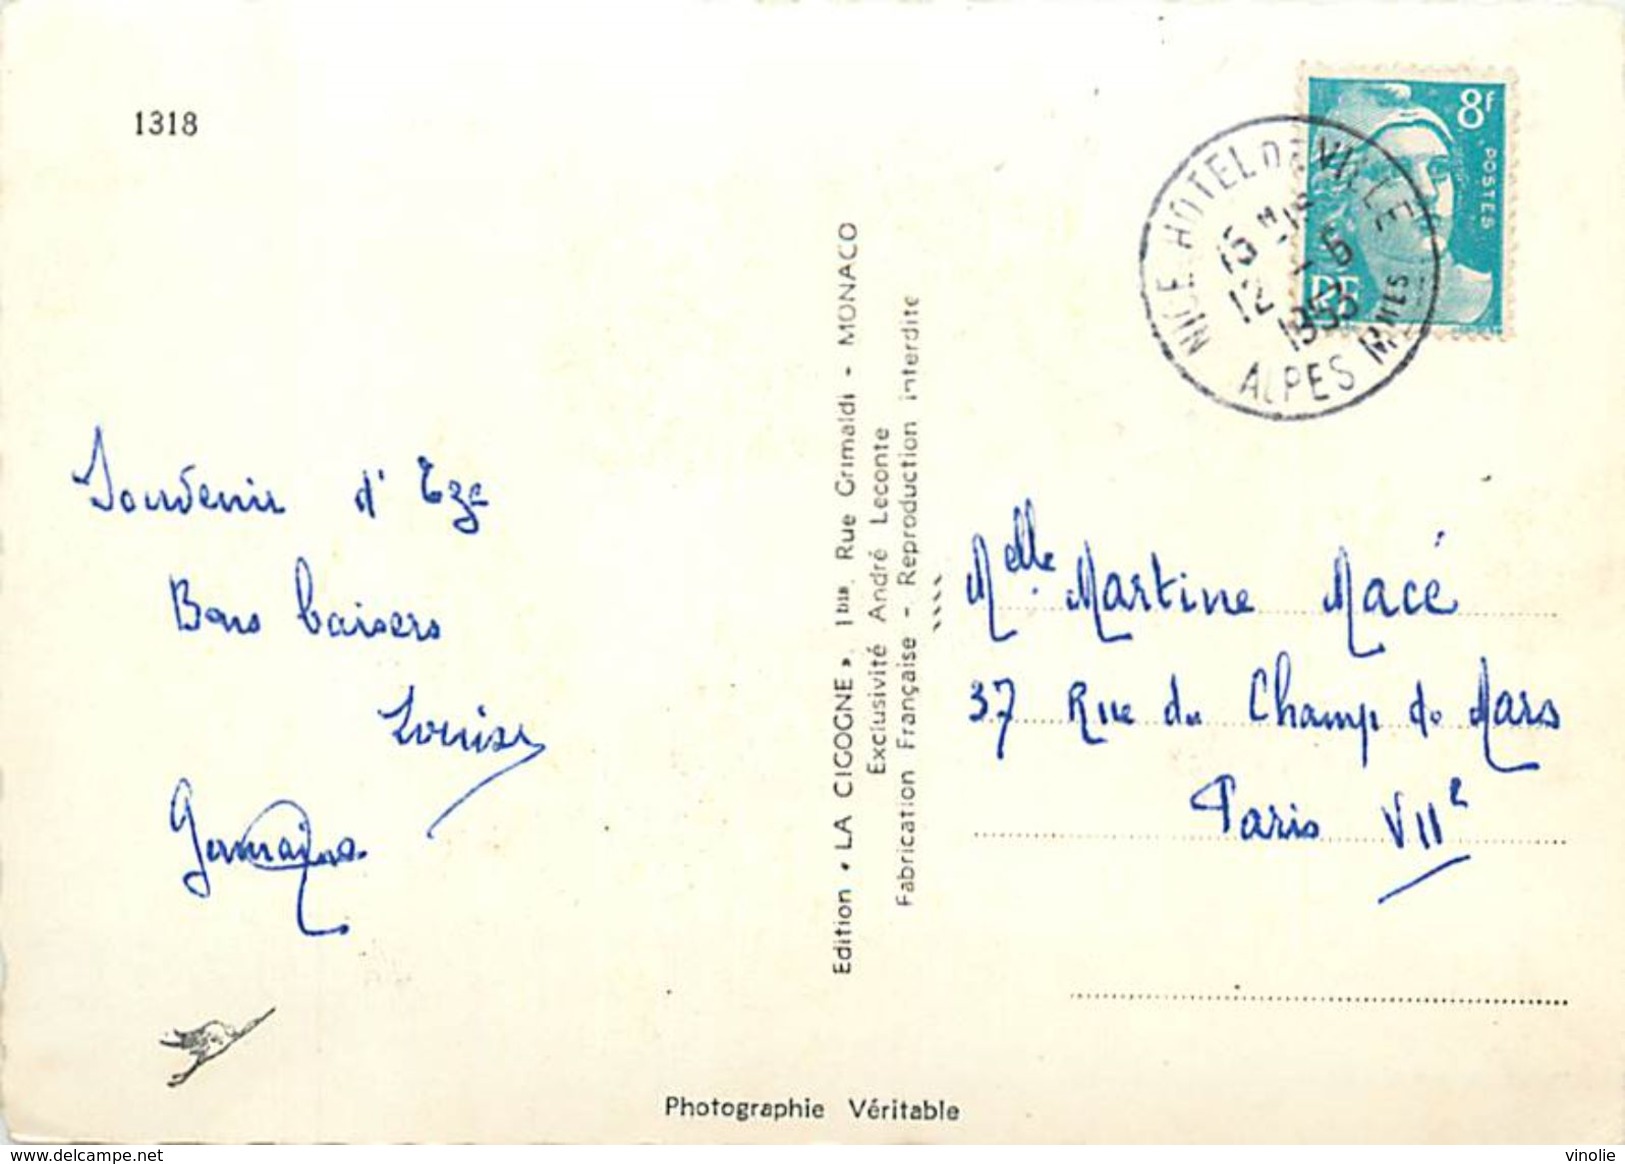 1318
Souvenir d'Eze
Bons baisers
Louise
Germaine
Edition « LA CIGOGNE ». 1bis. Rue Grimaldi - MONACO
Exclusivité André Leconte
Fabrication Française - Reproduction interdite
8f
POSTES
RF
NICE HOTEL DE VILLE
15H15
12 -6
1953
ALPES MMES
Melle Martine Macé
37 Rue du Champ de Mars
Paris VIIe
Photographie Véritable
www.delcampe.net
vinolie